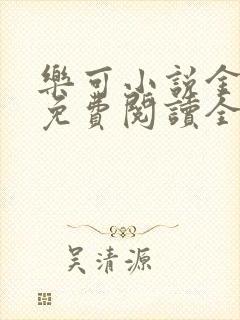 樂可小說全
免費閱讀全
吳清源